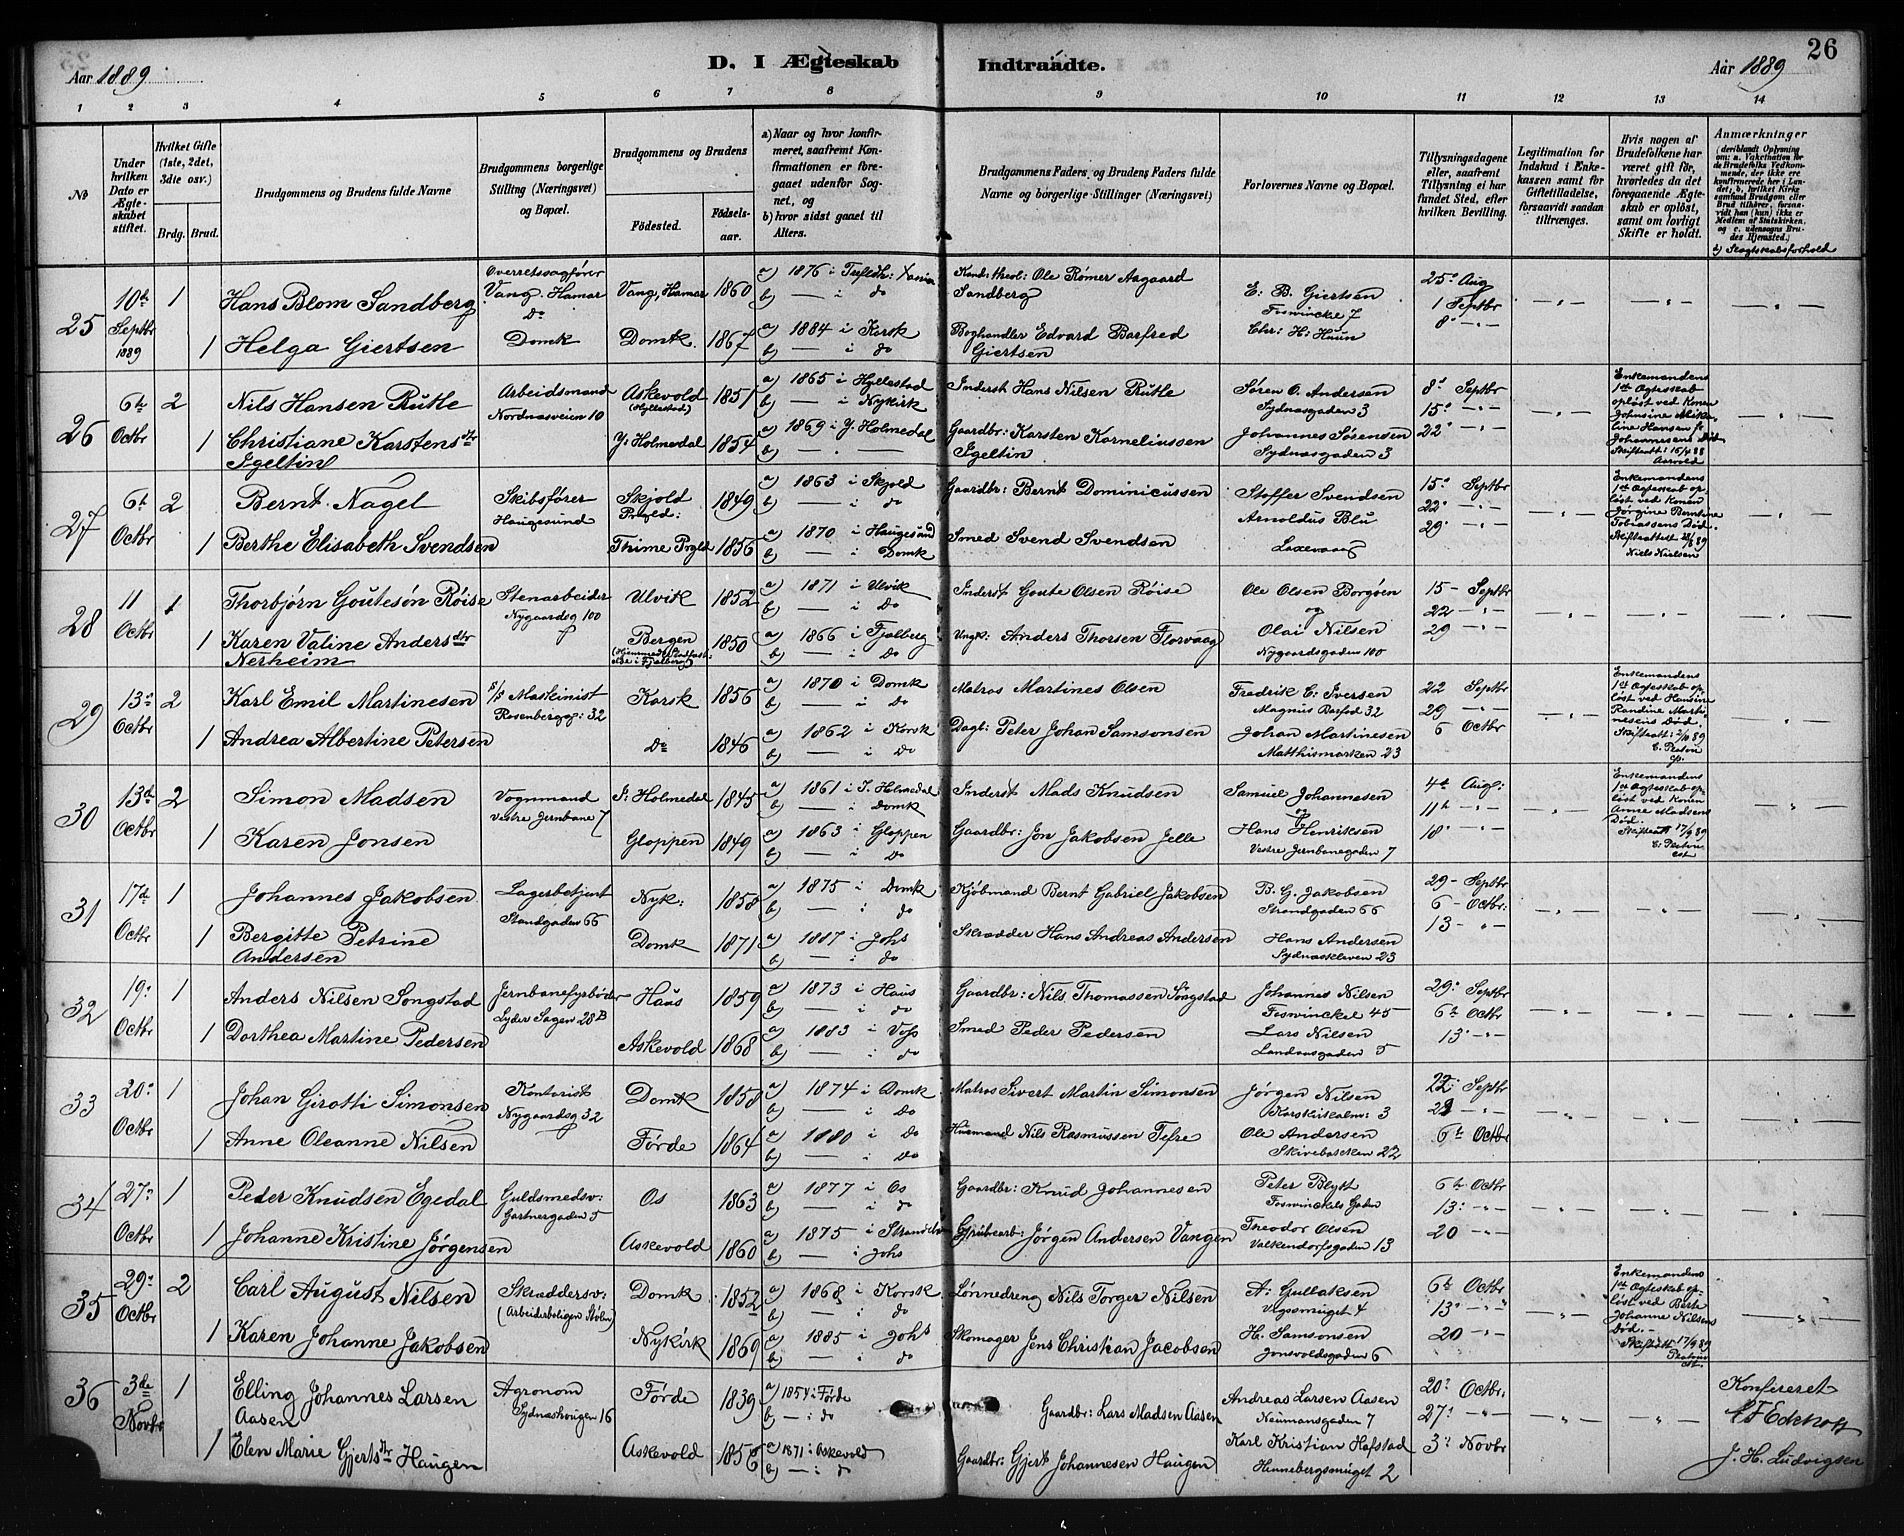 26
D. I Ægteskab Indtraadte.
Aar 1889
Aar 1889
1 2 3 4 5 6 7 8 9 10 11 12 13 14
No
Under hvilken Dato er Ægteskabet stiftet.
Hvilket Gifte (1ste, 2det, 3die osv.)
Brdg. Brud.
Brudgommens og Brudens fulde Navne
Brudgommens borgerlige Stilling (Næringsvei) og Bopæl.
Brudgommens og Brudens
Fødested. Fødselsaar.
a) Naar og hvor konfirmeret, saafremt Konfirmationen er foregaaet udenfor Sognet, og
b) hvor sidst gaaet til Alters.
Brudgommens Faders og Brudens Faders fulde Navne og borgerlige Stillinger (Næringsvei)
Forlovernes Navne og Bopæl.
Tillysningsdagene eller, saafremt Tillysning ei har fundet Sted, efter hvilken Bevilling.
Legitimation for Indskud i Enkekassen samt for Giftetilladelse, forsaavidt saadan tiltrænges.
Hvis nogen af Brudefolkene har været gift før, hvorledes da det foregaaende Ægteskab er opløst, samt om lovligt Skifte er holdt.
Anmærkninger
(deriblandt Oplysning om: a. Vakcination for de Brudefolks Vedkommende, der ikke ere konfirmerede her i Landet; b. hvilket Kirkesamfund Brudgom eller Brud tilhører, forsaavidt han (hun) ikke er Medlem af Statskirken, og c. udensogns Brudes Hjemsted.)
b) Slægtskabsforhold
25 10de Septbr 1889 1 Hans Blom Sandberg Overretssagfører Vang. Hamar Vang, Hamar 1860 a) 1876 i Trefldh: Xania b) — i do Kand: theol: Ole Rømer Aagaard Sandberg E. B. Giertsen Foswinckel 7 25 Aug 1 Septbr 8 — " —
1 Helga Giertsen Do Domk Domk. 1867 a) 1884 i Korsk b) — i do Boghandler Edvard Barfred Giertsen Chr: H: Huun
26 6te Octbr 2 Nils Hansen Rutle Arbeidsmand Nordnæsveien 10 Askevold (Hyllestad) 1851 a) 1865 i Hyllestad b) — i Nykirk Inderst Hans Nilsen Rutle Søren O. Andersen Sydnæsgaden 3 8 Septbr 15 — " — 22 — " — Enkemandens 1ste Ægteskab opløst ved Konen Johnsine Mikaline Hansen f. Johannesens Død Skifteatt: 16/4 88 Aarvold
1 Christiane Karstensdtr Igeltin Y. Holmedal 1854 a) 1869 i Y. Holmedal b) — . — Gaardbr: Karsten Korneliussen Igeltin Johannes Sørensen Sydnæsgaden 3
27 6te Octbr 2 Bernt Nagel Skibsfører Haugesund Skjold Prgld: 1849 a) 1863 i Skjold b) — i do Gaardbr: Bernt Dominicussen Stoffer Svendsen Arnoldus Blu 15 Septbr 22 — " — 29 — " — Enkemandens 1ste Ægteskab opløst ved Konen Jørgine Berntine Tobiassens Død. Skifteattest 28/8 89 Niels Nielsen
1 Berthe Elisabeth Svendsen Thime Prgld 1856 a) 1870 i Haugesund b) — i Domk Smed Svend Svendsen Laxevaag
28 11 Octbr 1 Thorbjørn Goutesøn Røise Stenarbeider Nygaardsg 100 Ulvik 1852 a) 1871 i Ulvik b) — i Do Inderst Goute Olsen Røise Ole Olsen Borgøen og 15 - Septbr 22 — " — 29 — " —
1 Karen Valine Andersdtr Nerheim Bergen 1850 a) 1866 i Fjelberg b) — i Do Ungk: Anders Thorsen Florvaag Olai Nilsen Nygaardsgaden 100
29 13 Octbr 2 Karl Emil Martinesen S/S Maskinist Rosenbergg: 32 Korsk 1856 a) 1870 i Domk b) — i Do Matros Martines Olsen Fredrik C: Iversen Magnus Barfod 32 22 Septbr 29 — " — 6 Octbr Enkemandens 1ste Ægteskab opløst ved Hansine Randine Martinesens Død. Skifteatt: 2/10 89 C. Platou
1 Andrea Albertine Petersen Do 1846 a) 1862 i Korsk b) — i do Dagl: Peter Johan Samsonsen Johan Martinesen Matthismarken 23
30 13de Octbr 2 Simon Madsen Vognmand Vestre Jernbane 7 I: Holmedal 1845 a) 1861 i I. Holmedal b) — i Domk Inderst Mads Knudsen Samuel Johannesen og 4de Augt: 11te — " — 18 — " — Enkemandens 1ste Ægteskab opløst ved Konen Anna Madsens Død. Skifteatt 17/9 89 C: Platou
1 Karen Jonsen Gloppen 1849 a) 1863 i Gloppen b) — i Do Gaardbr: Jon Jakobsen Jelle Hans Henriksen Vestre Jernbanegaden 7
31 17de Octbr 1 Johannes Jakobsen Lagerbetjent Strandgaden 66 Nyk: 1858 a) 1875 i Domk b) — i do Kjøbmand Bernt Gabriel Jakobsen B. G. Jakobsen Strandgaden 66 29 - Septbr 6 - Octbr: 13 — " —
1 Bergitte Petrine Andersen Domk 1871 a) 1887 i Johs b) — i do Skrædder Hans Andreas Andersen Hans Andersen Sydnæskleven 23
32 19 Octbr 1 Anders Nilsen Songstad Jernbanefyrbøder Lyder Sagen 28B Haus 1859 a) 1873 i Haus b) — i do Gaardbr: Nils Thomassen Songstad Johannes Nilsen Foswinckel 45 29 Septbr 6te Octbr 13 — " —
1 Dorthea Martine Pedersen Askevold 1868 a) 1883 i Voss b) — i do Smed Peder Pedersen Lars Nilsen Landaasgaden 5
33 20 Octbr 1 Johan Girotti Simonsen Kontorist Nygaardsg 32 Domk 1858 a) 1874 i Domk b) — i Do Matros Sivert Martin Simonsen Jørgen Nilsen Korskirkealm: 3 22 Septbr 29 — " — 6te Octbr
1 Anne Oleanne Nilsen Førde 1864 a) 1880 i Do b) — i Do Husmand Nils Rasmussen Tefre Ole Andersen Skivebakken 22
34 27 Octbr 1 Peder Knudsen Egedal Guldsmedsv: Gartnergaden 5 Os 1863 a) 1877 i Os b) — i do Gaardbr: Knud Johannesen Peter Blytt Foswinckels Gaden 6te Octbr 13 — " — 20 — " —
1 Johanne Kristine Jørgensen Askevold 1860 a) 1875 i b) — i Johs Grubearb: Jørgen Andersen Vangen Theodor Olsen Valkendorfsgaden 13
35 29 Octbr 2 Carl August Nilsen Skræddersv: (Arbeiderboligen Stølen) Domk 1852 a) 1868 i Korsk b) — i do Lønnedreng Nils Torger Nilsen A: Gullaksen Vegssmuget 4 6te Octbr 13 — " — 20 — " — Enkemandens 1ste Ægteskab opløst ved Berte Johanne Nilsens Død. Skifteatt 17/9 89 Platou
1 Karen Johanne Jakobsen Nykirk 1869 a) 1885 i Johs b) — i do Skomager Jens Christian Jacobsen H. Samsonsen Jonsvoldsgaden 6
36 3de Novbr 1 Elling Johannes Larsen Aasen Agronom Sydnæshougen 16 Førde 1839 a) 1854 i Førde b) — i do Gaardbr: Lars Madsen Aasen Andreas Larsen Aasen Neumansgaden 7 20 Octbr: 27 — " — 3 Novbr Konfereret
1 Elen Marie Gjertsdtr Haugen Askevold 1856 a) 1871 i Askevold b) — i do Gaardbr: Gjert Johannesen Haugen Karl Kristian Hafstad Hinnebergsmuget 2 J. H. Ludvigsen